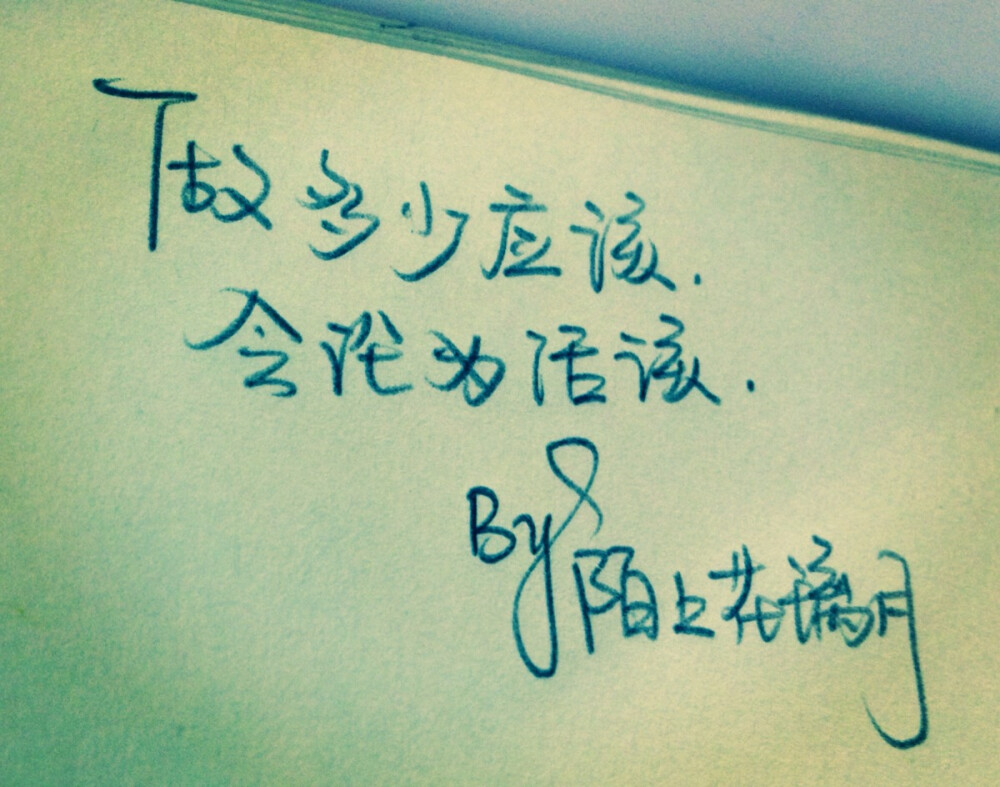 做多少应该.
会沦为活该.
By 陌上花璃月